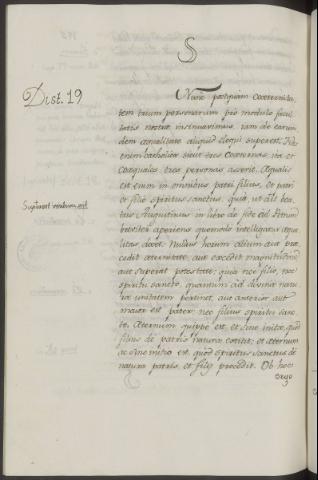 S
Dist. 19
Nunc postquam coaeternita-
tem trium personarum pro modulo facul
tatis nostrae insinuavimus, iam de earun
dem aequalitate aliquid eloqui superest. Fides
enim catholica sicut tres coaeternas, ita et
coaequales tres personas asserit. Aequalis
est enim in omnibus patri filius, et patri
et filio spiritus sanctus, quia, ut ait bea
tus Augustinus in libro de fide ad Petrum
breviter aperiens quomodo intelligatur aequa
litas, docet. Nullus horum alium aut prae
cedit aeternitate, aut excedit magnitudine
aut superat potestate; quia nec filio, nec
spiritu sancto, quantum ad divinae natu
rae unitatem pertinet, aut anterior aut
maior est pater; nec filius spiritu sanc
to. Aeternum quippe est, et sine initio, quod
filius de patris natura extitit: et aeternum
ac sine initio est, quod spiritus sanctus de
natura patris, et filij procedit. Ob hoc
ergo